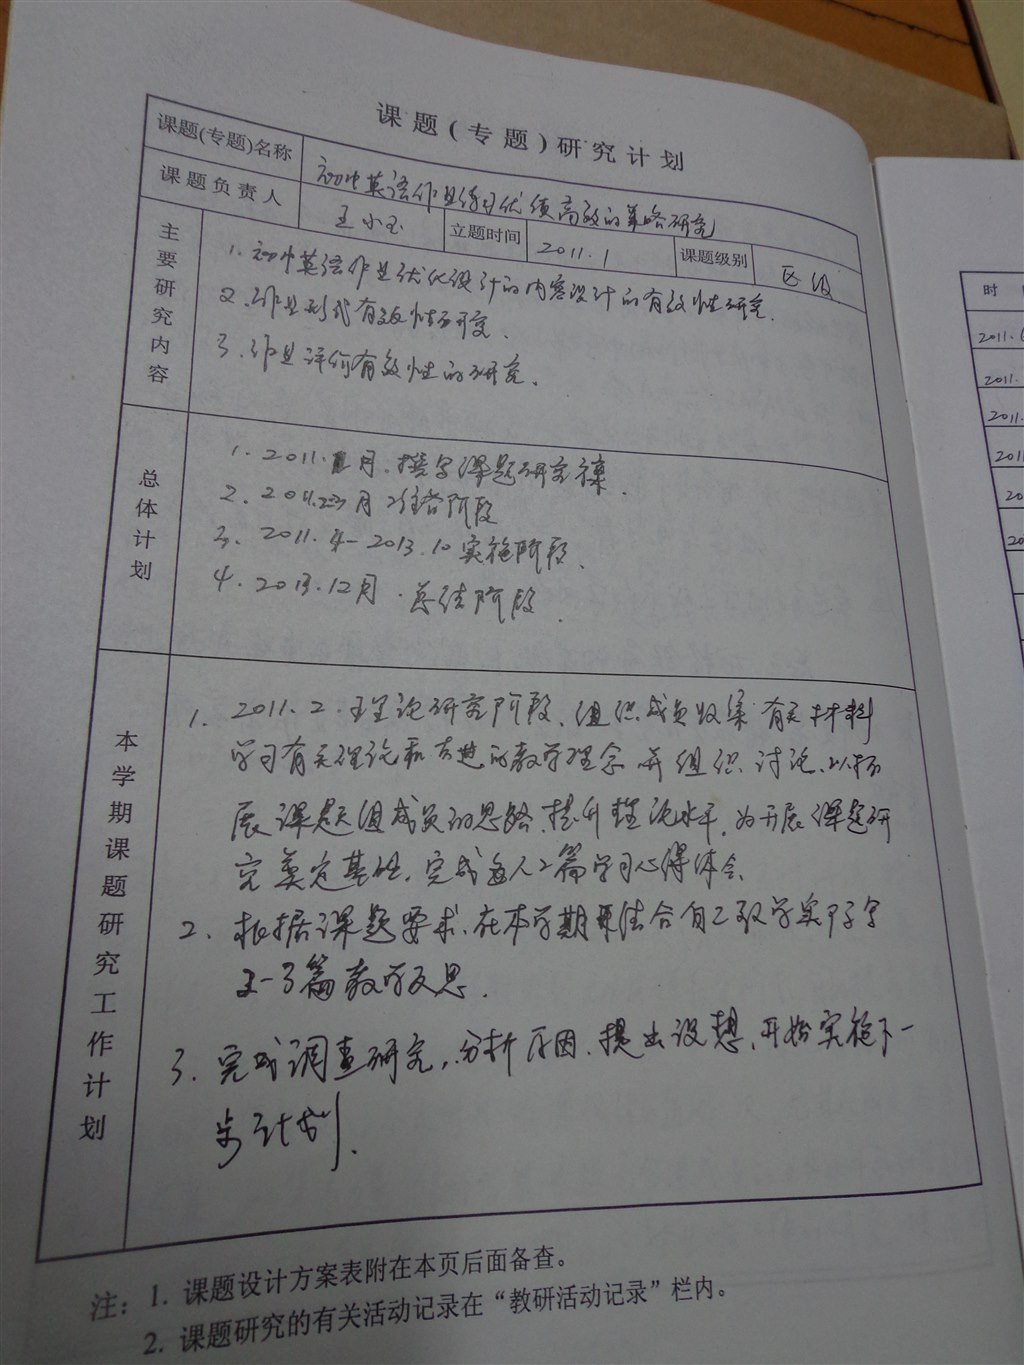 课题(专题)研究计划
课题(专题)名称 初中英语作业练习优质高效的策略研究
课题负责人 王小玉 立题时间 2011.1 课题级别 区级
主要研究内容
1. 初中英语作业优化设计的内容设计的有效性研究.
2. 作业形式有效性研究.
3. 作业评价有效性的研究.
总体计划
1. 2011.1月.撰写课题研究方案.
2. 2011.2-3月 准备阶段
3. 2011.4-2013.10 实施阶段.
4. 2013.12月.总结阶段.
本学期课题研究工作计划
1. 2011.2.理论研究阶段.组织成员收集有关材料
学习有关理论和先进的教学理念 并组织讨论.以拓
展课题组成员的思路.提升理论水平.为开展课题研
究奠定基础.完成每人2篇学习心得体会.
2. 根据课题要求.在本学期结合自己教学实际写
2-3篇教学反思.
3. 完成调查研究,分析原因.提出设想.开始实施下一
步计划.
注: 1. 课题设计方案表附在本页后面备查。
2. 课题研究的有关活动记录在“教研活动记录”栏内。
时
2011.
2011.
2011.
2011
20
20